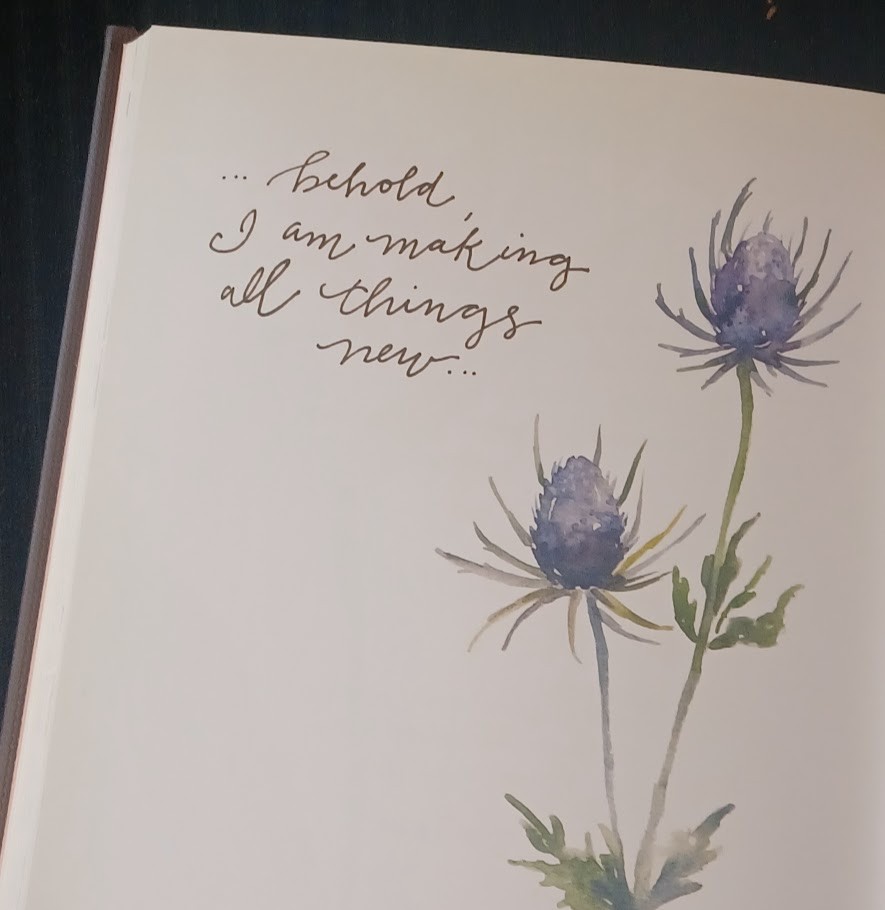 ... behold,
I am making
all things
new...